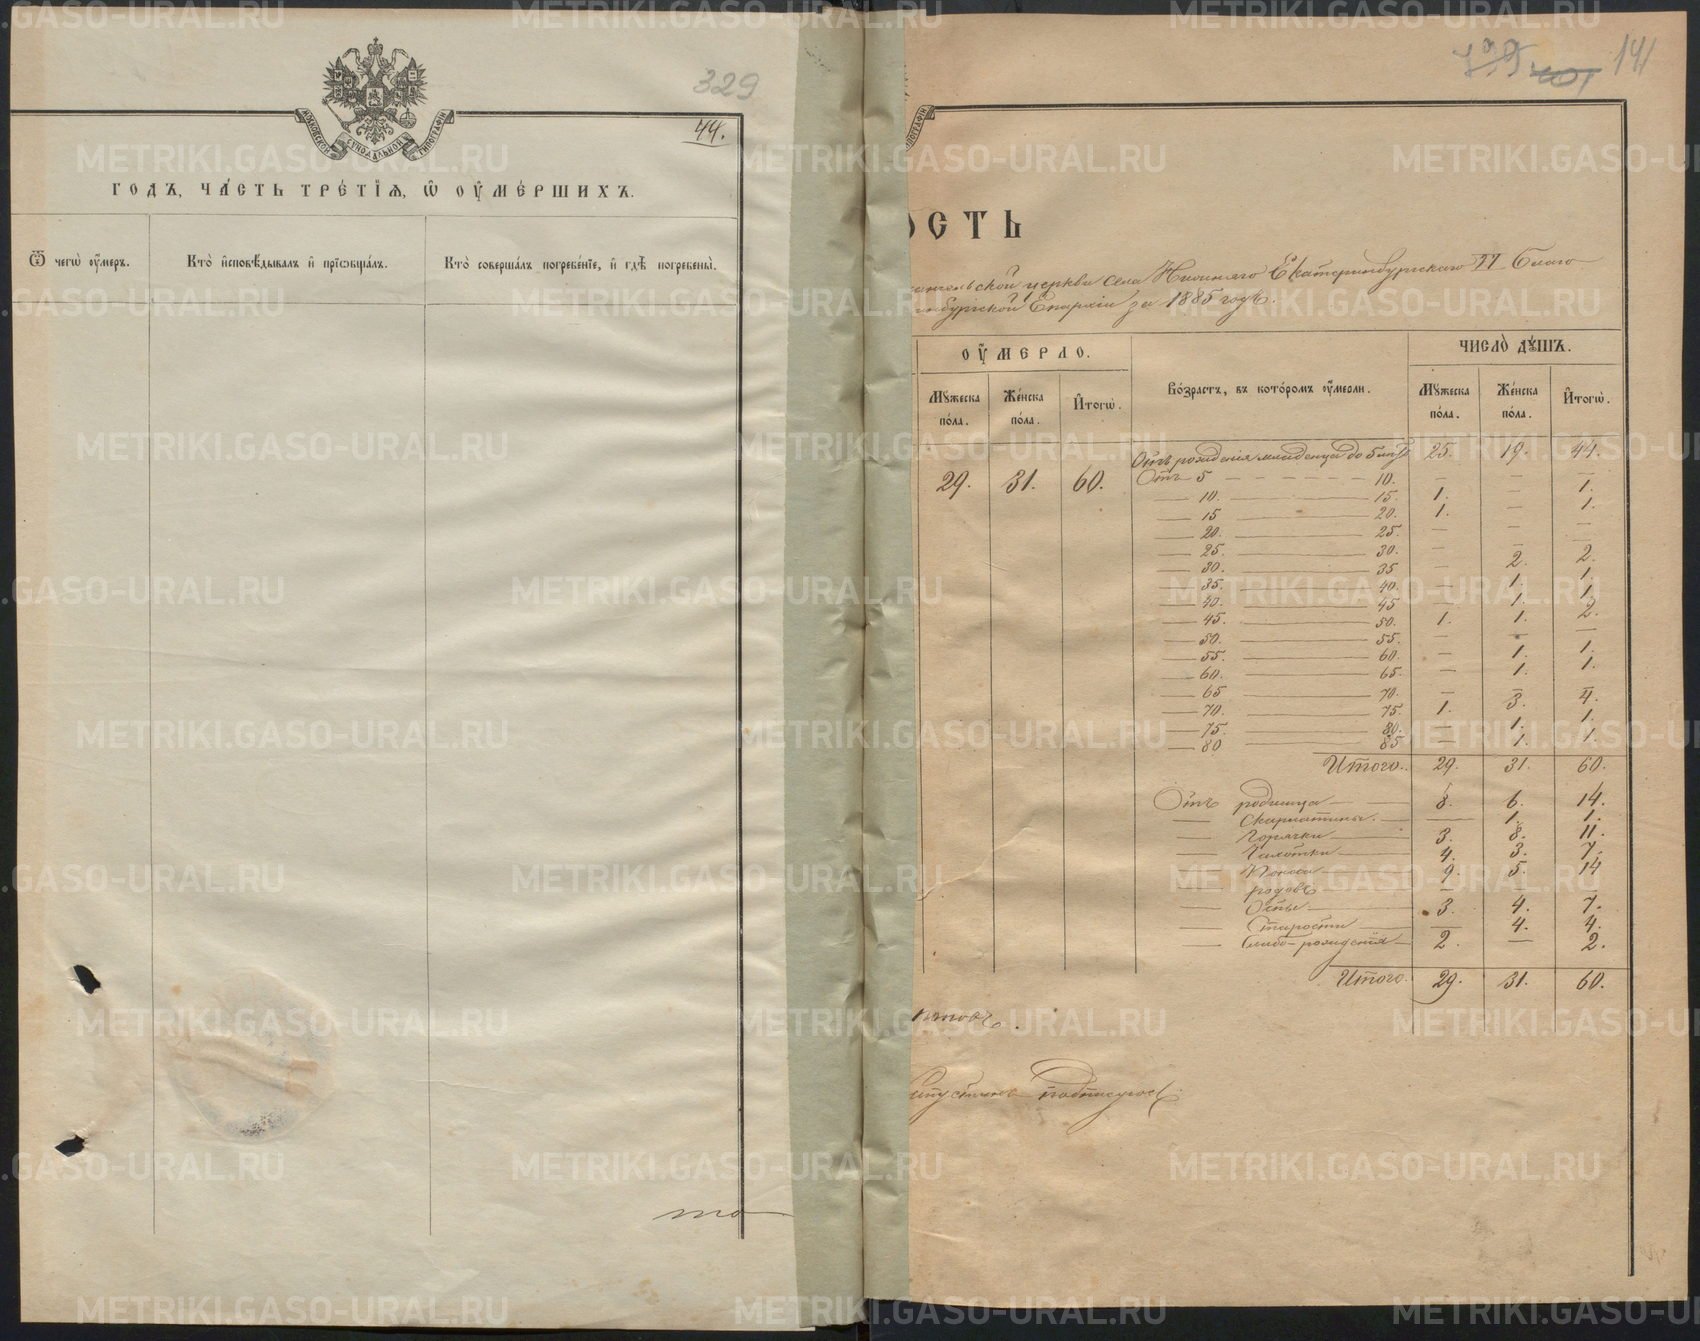 329
44.
МОСКОВСКОЙ СѴНОДАЛЬНОЙ ТИПОГРАФІИ
ГОДЪ, ЧА́СТЬ ТРЕ́ТІѦ, Ѿ ОУ҆МЕ́РШИХЪ.
Ѿ чегѡ̀ оу҆́меръ.
Кто̀ и҆сповѣ́дывалъ и҆ пріѡбща́лъ.
Кто̀ соверша́лъ погребе́ніе, и҆ гдѣ̀ погребены̀.
то
141
ОСТЬ
церкви села Нижняго Екатеринбургскаго II благо
Епархіи за 1885 годъ.
ОУ҆́МЕРЛО.
Мꙋ́жеска по́ла.
Же́нска по́ла.
И҆тогѡ̀.
Во́зрастъ, въ кото́ромъ оу҆́мерли.
ЧИСЛО̀ ДꙊ́ШЪ.
Мꙋ́жеска по́ла.
Же́нска по́ла.
И҆тогѡ̀.
29. 31. 60.
Отъ рожденія младенца до 5 лѣтъ 25. 19. 44.
Отъ 5 — 10. — — 1.
— 10. — 15. 1. — 1.
— 15 — 20. 1. — —
— 20. — 25. — — —
— 25. — 30. — 2. 2.
— 30. — 35 — 1. 1.
— 35. — 40. — 1. 1.
— 40. — 45 1. 1. 2.
— 45. — 50. — — —
— 50. — 55. — 1. 1.
— 55. — 60. — 1. 1.
— 60. — 65. — — —
— 65 — 70. 1. 3. 4.
— 70. — 75. — 1. 1.
— 75. — 80. — 1. 1.
— 80 — 85
Итого. 29. 31. 60.
Отъ родимца — 8. 6. 14.
— Скарлатины. — 1. 1.
— Горячки — 3. 8. 11.
— Чахотки — 4. 3. 7.
— Поноса — 9. 5. 14
— родовъ — — —
— Оспы — 3. 4. 7.
— Старости — 4. 4.
— Слабо-рожденія — 2. — 2.
Итого. 29. 31. 60.
подписуюсь
METRIKI.GASO-URAL.RU